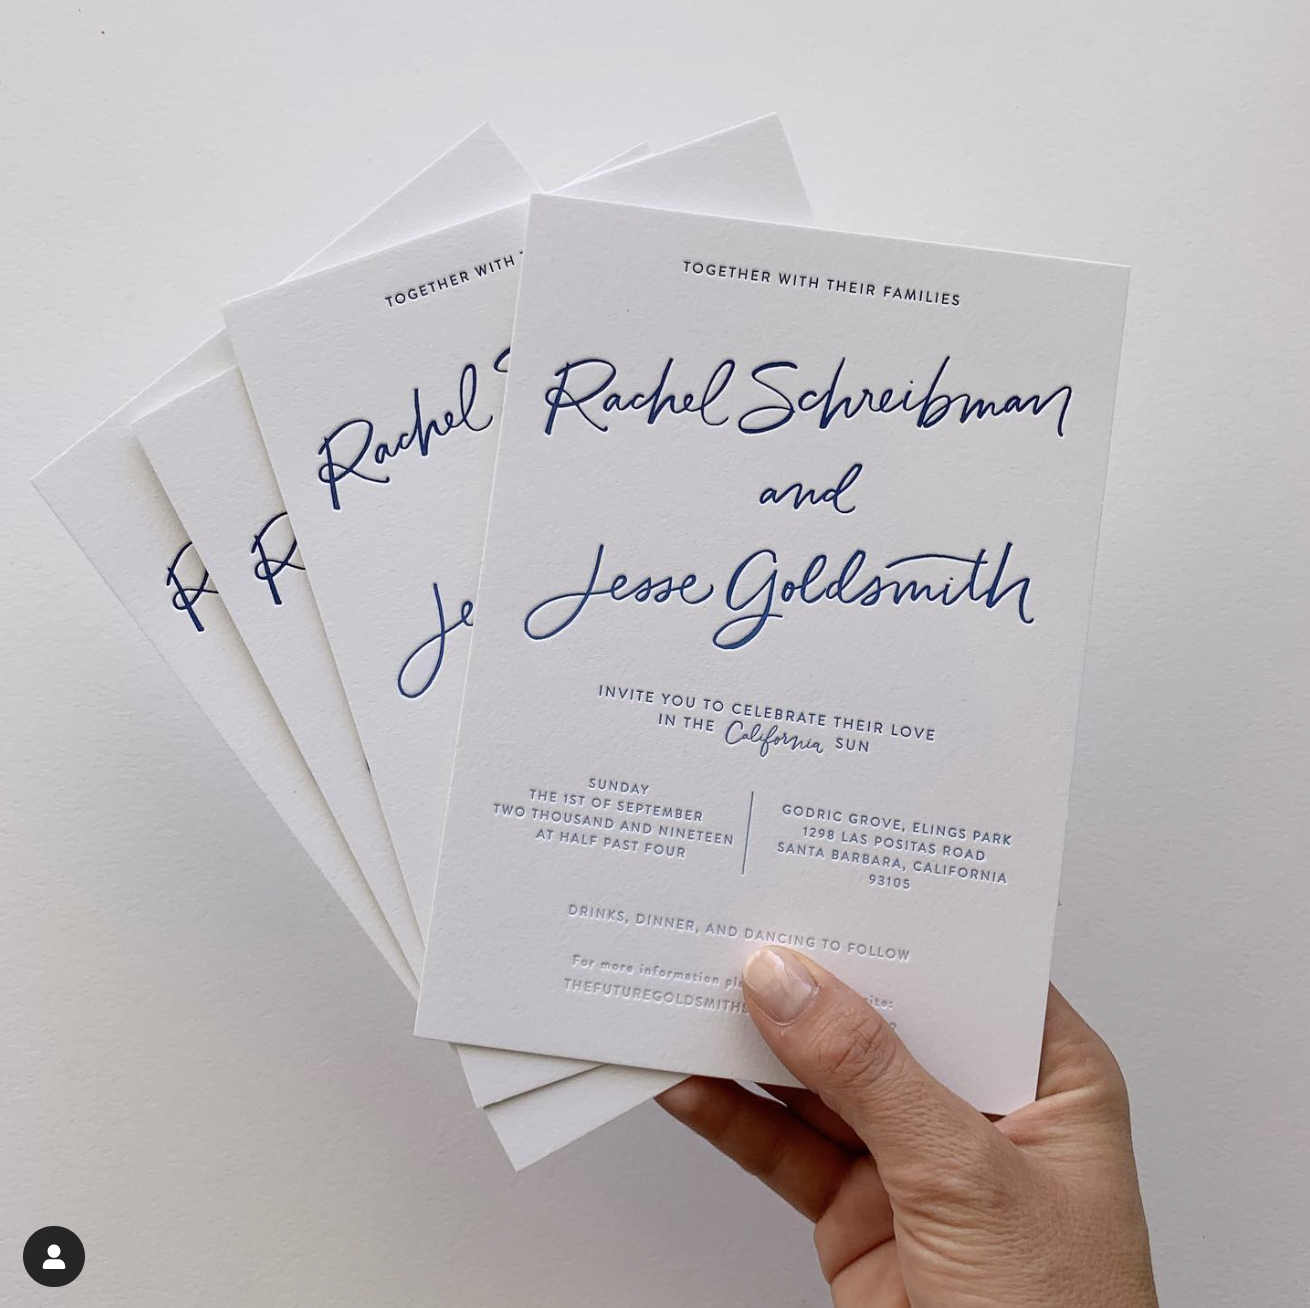 TOGETHER WITH THEIR FAMILIES
Rachel Schreibman
and
Jesse Goldsmith
INVITE YOU TO CELEBRATE THEIR LOVE
IN THE California SUN
SUNDAY
THE 1ST OF SEPTEMBER
TWO THOUSAND AND NINETEEN
AT HALF PAST FOUR
GODRIC GROVE, ELINGS PARK
1298 LAS POSITAS ROAD
SANTA BARBARA, CALIFORNIA
93105
DRINKS, DINNER, AND DANCING TO FOLLOW
For more information
THEFUTUREGOLDSMITHS
TOGETHER WITH
Rachel
Je
R
R